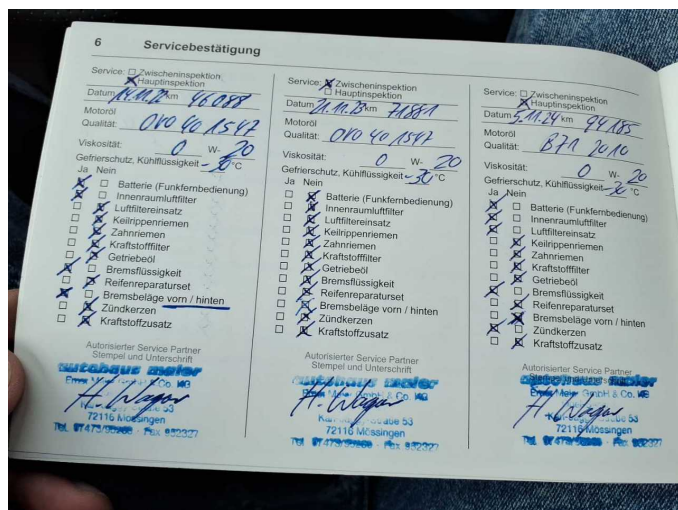 6 Servicebestätigung
Service: Zwischeninspektion
Hauptinspektion
Datum 14.11.22 km 46088
Motoröl
Qualität: OVO 40 1547
Viskosität: 0 W- 20
Gefrierschutz, Kühlflüssigkeit -30 °C
Ja Nein
Batterie (Funkfernbedienung)
Innenraumluftfilter
Luftfiltereinsatz
Keilrippenriemen
Zahnriemen
Kraftstofffilter
Getriebeöl
Bremsflüssigkeit
Reifenreparaturset
Bremsbeläge vorn / hinten
Zündkerzen
Kraftstoffzusatz
Autorisierter Service Partner
Stempel und Unterschrift
autohaus maier
GmbH & Co. KG
H. Wagner
72116 Mössingen
Service: Zwischeninspektion
Hauptinspektion
Datum 21.11.23 km 71881
Motoröl
Qualität: OVO 40 1547
Viskosität: 0 W- 20
Gefrierschutz, Kühlflüssigkeit -30 °C
Ja Nein
Batterie (Funkfernbedienung)
Innenraumluftfilter
Luftfiltereinsatz
Keilrippenriemen
Zahnriemen
Kraftstofffilter
Getriebeöl
Bremsflüssigkeit
Reifenreparaturset
Bremsbeläge vorn / hinten
Zündkerzen
Kraftstoffzusatz
Autorisierter Service Partner
Stempel und Unterschrift
autohaus maier
GmbH & Co. KG
H. Wagner
72116 Mössingen
Service: Zwischeninspektion
Hauptinspektion
Datum 5.11.24 km 94185
Motoröl
Qualität: B71 2010
Viskosität: 0 W- 20
Gefrierschutz, Kühlflüssigkeit °C
Ja Nein
Batterie (Funkfernbedienung)
Innenraumluftfilter
Luftfiltereinsatz
Keilrippenriemen
Zahnriemen
Kraftstofffilter
Getriebeöl
Bremsflüssigkeit
Reifenreparaturset
Bremsbeläge vorn / hinten
Zündkerzen
Kraftstoffzusatz
Autorisierter Service Partner
GmbH & Co. KG
H. Wagner
72116 Mössingen